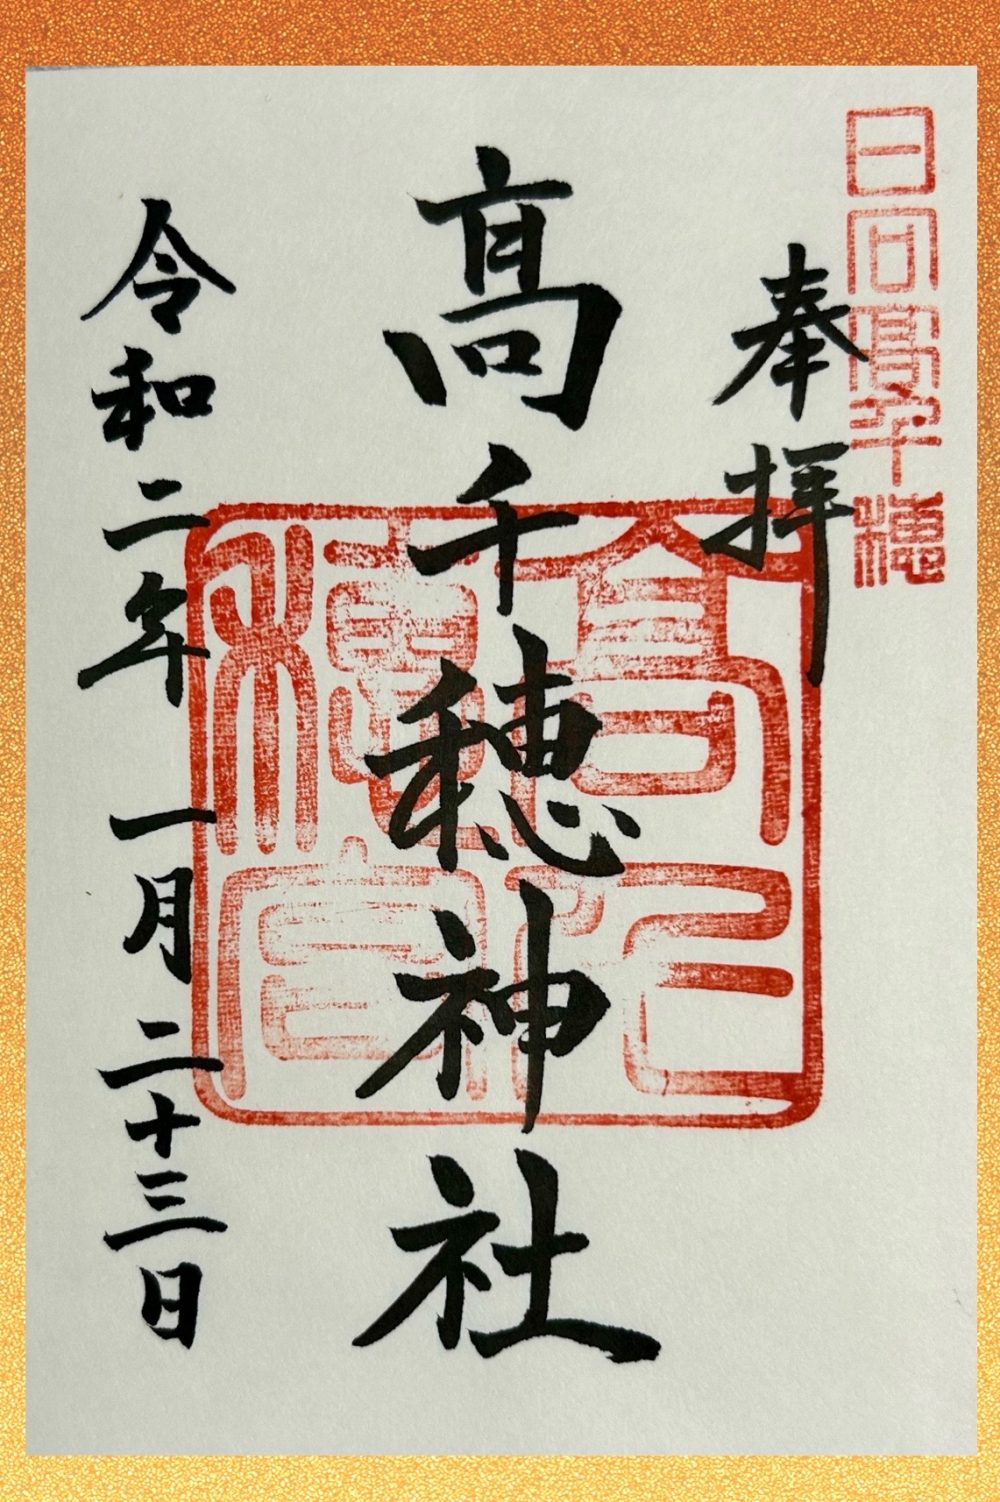 日向高千穂
奉拝
髙千穂神社
令和二年一月二十三日